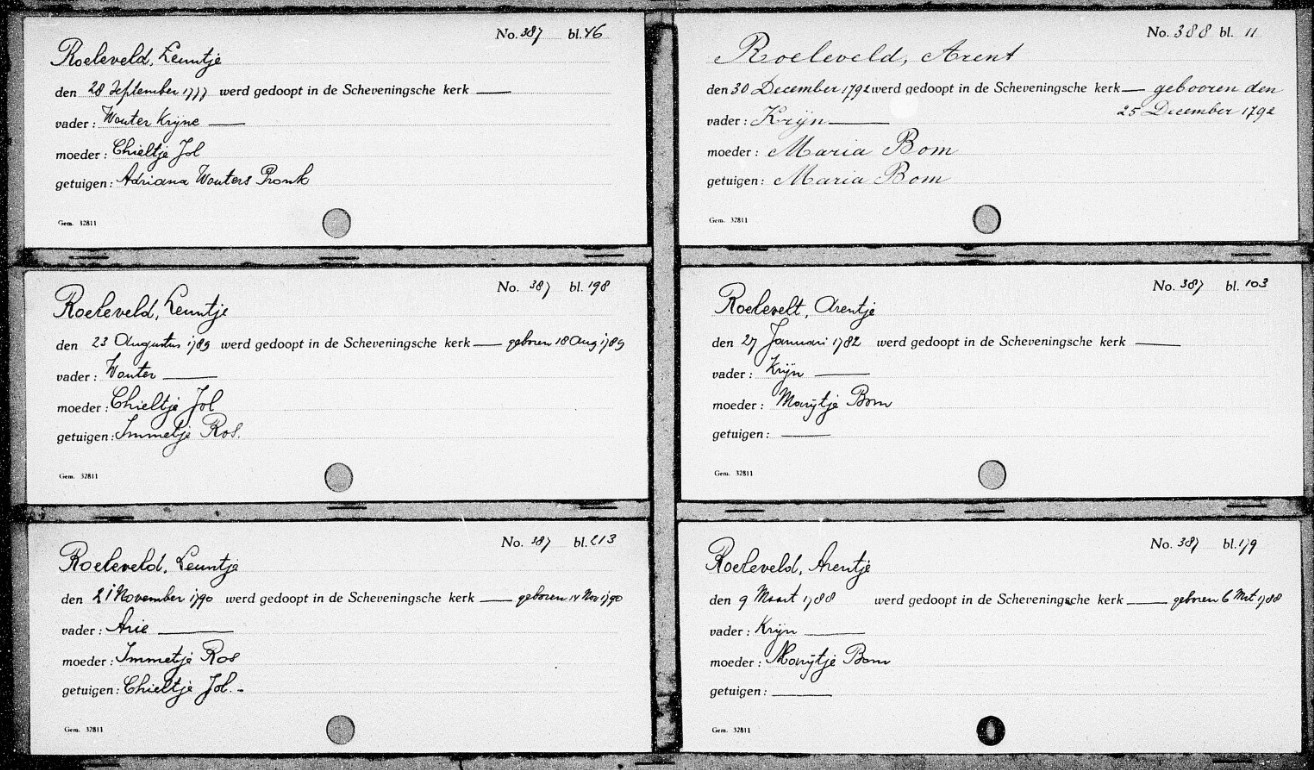 No. 387 bl. 46
Roeleveld, Leuntje
den 28 September 1777 werd gedoopt in de Scheveningsche kerk
vader: Wouter Krijne
moeder: Chieltje Jol
getuigen: Adriana Wouters Pronk
Gem. 32811
No. 387 bl. 198
Roeleveld, Leuntje
den 23 Augustus 1789 werd gedoopt in de Scheveningsche kerk geboren 18 Aug 1789
vader: Wouter
moeder: Chieltje Jol
getuigen: Immetje Ros.
Gem. 32811
No. 387 bl. 213
Roeleveld, Leuntje
den 21 November 1790 werd gedoopt in de Scheveningsche kerk geboren 14 Nov 1790
vader: Arie
moeder: Immetje Ros
getuigen: Chieltje Jol.-
Gem. 32811
No. 388 bl. 11
Roeleveld, Arent
den 30 December 1792 werd gedoopt in de Scheveningsche kerk gebooren den
25 December 1792
vader: Krijn
moeder: Maria Bom
getuigen: Maria Bom
Gem. 32811
No. 387 bl. 103
Roelevelt, Arentje
den 27 Januari 1782 werd gedoopt in de Scheveningsche kerk
vader: Krijn
moeder: Marijtje Bom
getuigen:
Gem. 32811
No. 387 bl. 179
Roeleveld, Arentje
den 9 Maart 1788 werd gedoopt in de Scheveningsche kerk geboren 6 Mrt 1788
vader: Krijn
moeder: Marijtje Bom
getuigen:
Gem. 32811